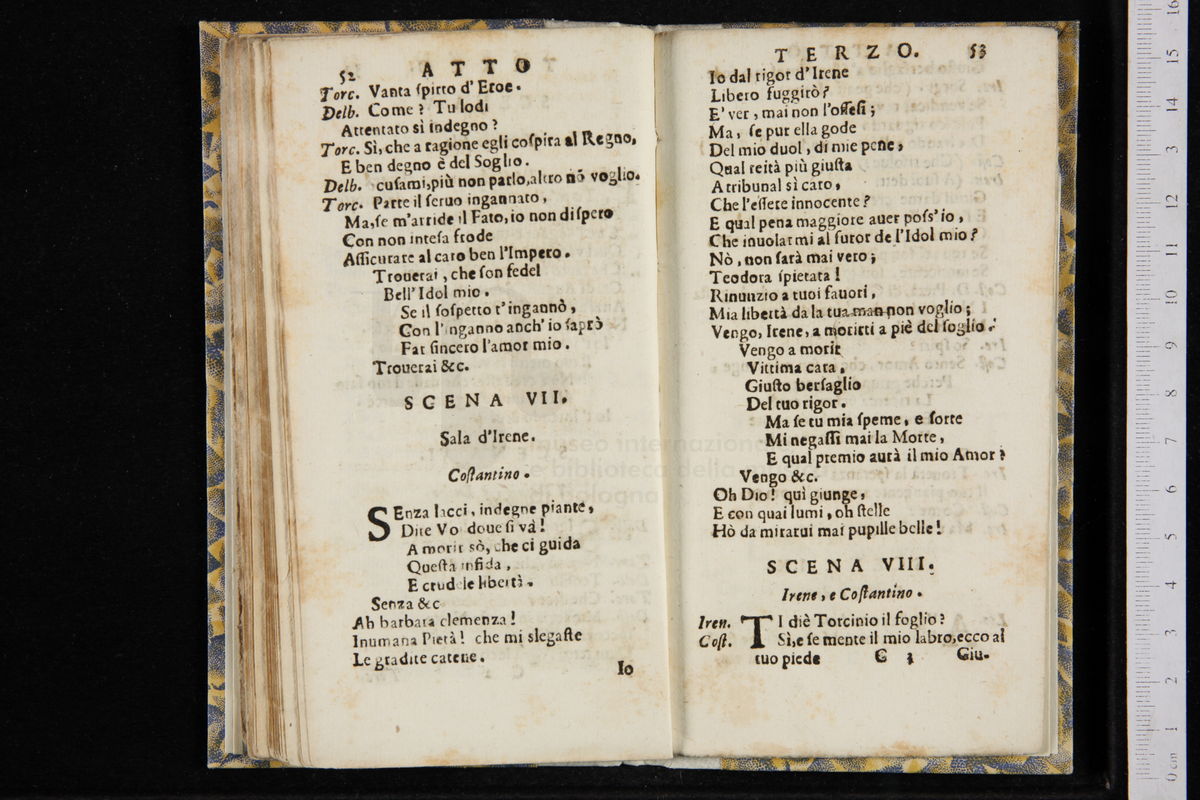 52 ATTO
Torc. Vanta ſpirto d'Eroe.
Delb. Come? Tu lodi
Attentato sì indegno?
Torc. Sì, che a ragione egli coſpira al Regno,
E ben degno è del Soglio.
Delb. cuſami, più non parlo, altro nõ voglio.
Torc. Parte il ſeruo ingannato,
Ma, ſe m'arride il Fato, io non diſpero
Con non inteſa frode
Aſſicurare al caro ben l'Impero.
Trouerai, che ſon fedel
Bell'Idol mio.
Se il ſoſpetto t'ingannò,
Con l'inganno anch'io ſaprò
Far ſincero l'amor mio.
Trouerai &c.
SCENA VII.
Sala d'Irene.
Coſtantino.
SEnza lacci, indegne piante,
Dite Vo doue ſi và!
A morir sò, che ci guida
Queſta infida,
E crudele libertà.
Senza &c
Ah barbara clemenza!
Inumana Pietà! che mi slegaſte
Le gradite catene.
Io
TERZO. 53
Io dal rigor d'Irene
Libero fuggirò?
E' ver, mai non l'offeſi;
Ma, ſe pur ella gode
Del mio duol, di mie pene,
Qual reità più giuſta
A tribunal sì caro,
Che l'eſſere innocente?
E qual pena maggiore auer poſs'io,
Che inuolarmi al furor de l'Idol mio?
Nò, non ſarà mai vero;
Teodora ſpietata!
Rinunzio a tuoi fauori,
Mia libertà da la tua man non voglio;
Vengo, Irene, a morirti a piè del ſoglio.
Vengo a morir
Vittima cara,
Giuſto berſaglio
Del tuo rigor.
Ma ſe tu mia ſpeme, e ſorte
Mi negaſſi mai la Morte,
E qual premio aurà il mio Amor?
Vengo &c.
Oh Dio! quì giunge,
E con quai lumi, oh ſtelle
Hò da mirarui mai pupille belle!
SCENA VIII.
Irene, e Coſtantino.
Iren. TI diè Torcinio il foglio?
Coſt. Sì, e ſe mente il mio labro, ecco al
tuo piede G 3 Giu-